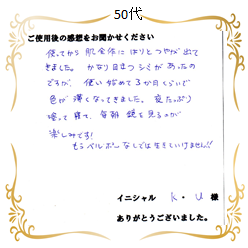 50代
ご使用後の感想をお聞かせください
使ってから 肌全体に はりとつやが出て
きました。 かなり目立つシミがあったの
ですが、 使い始めて3か月くらいで
色が薄くなってきました。 夜たっぷり
塗って寝て、毎朝 鏡を見るのが
楽しみです!
もうベルポーなしでは生きていけません!!
イニシャル K・U 様
ありがとうございました。